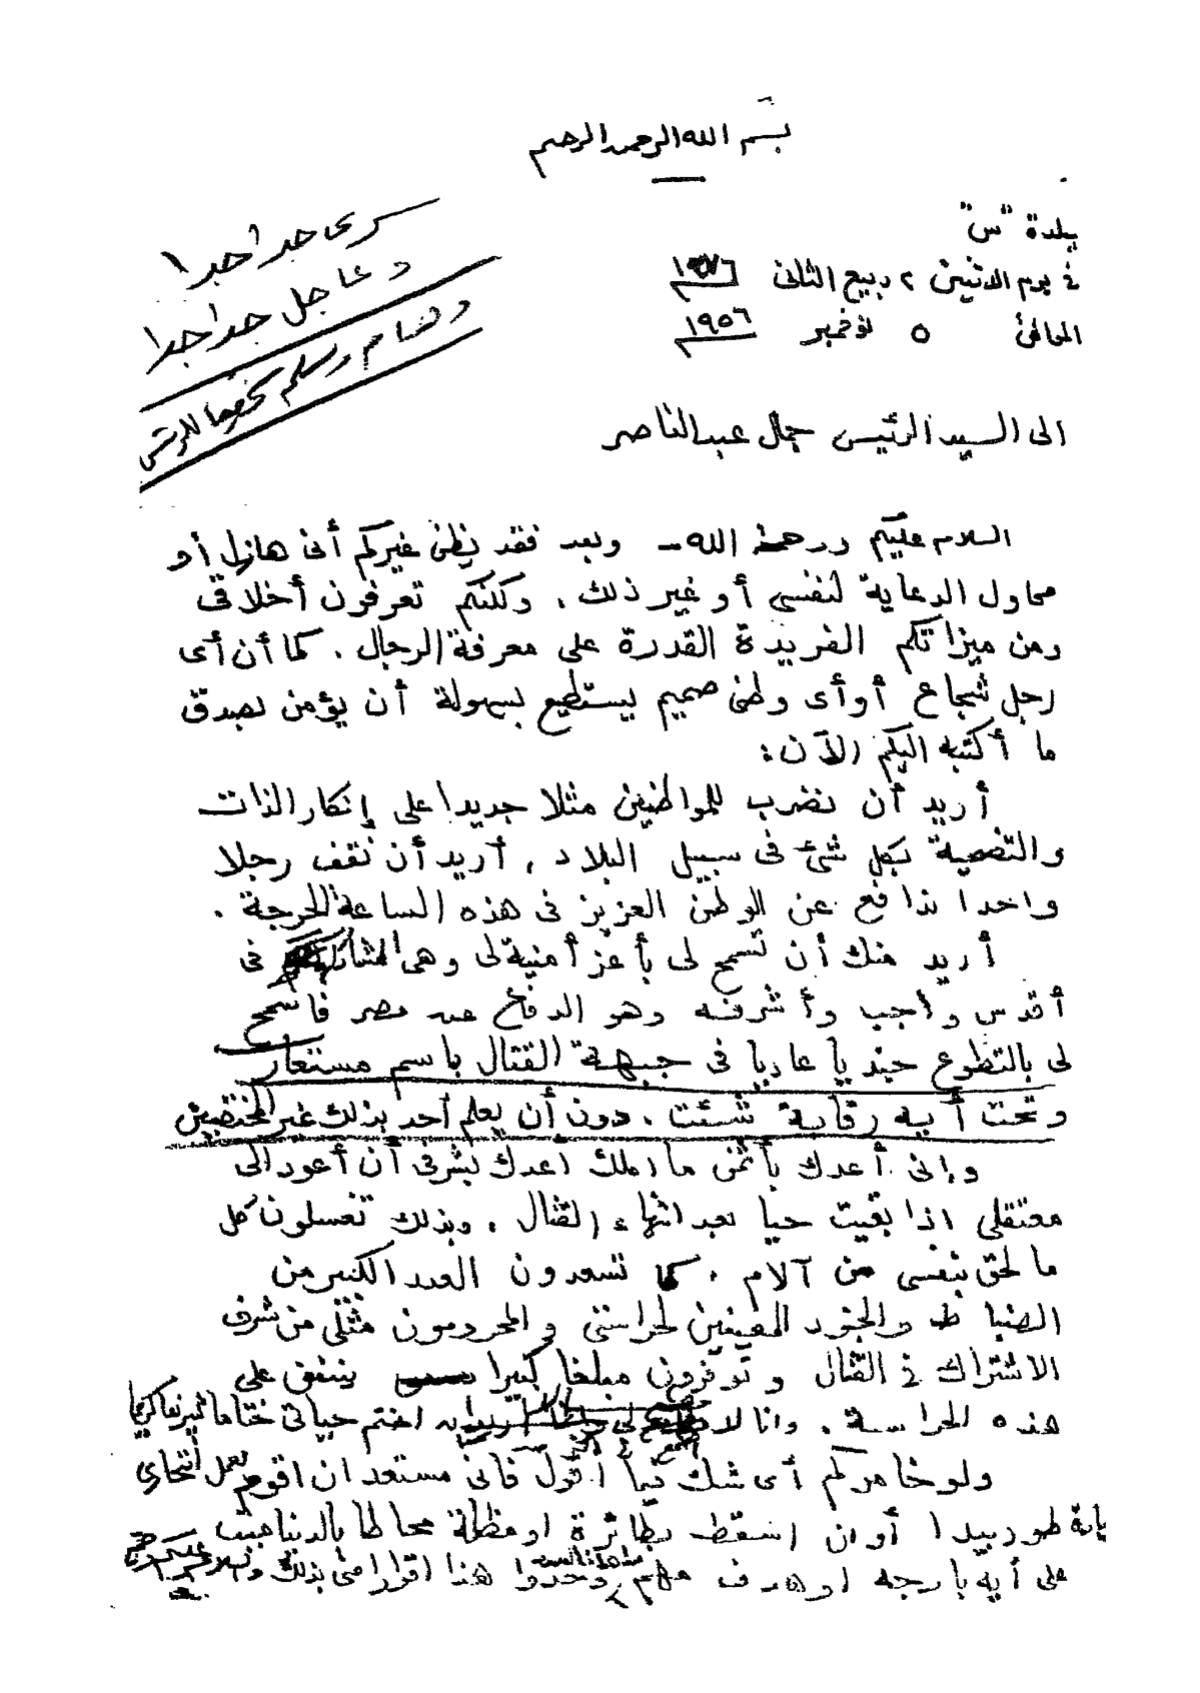 بسم الله الرحمن الرحيم
سرى جدا جدا
وعاجل جدا جدا
وهام ويسلم مخصوصا للرئيس
بلدة "س"
فى يوم الاثنين ٢ ربيع الثانى ١٣٧٦
الموافق ٥ نوفمبر ١٩٥٦
الى السيد الرئيس جمال عبد الناصر
السلام عليكم ورحمة الله – وبعد فقد يظن غيركم أنى هازل أو
محاول الدعاية لنفسى أو غير ذلك . ولكنكم تعرفون أخلاقى
ومن ميزاتكم الفريدة القدرة على معرفة الرجال . كما أن أى
رجل شجاع أو أى وطنى صميم يستطيع بسهولة أن يؤمن بصدق
ما أكتبه اليكم الآن :
أريد أن نضرب للمواطنين مثلا جديدا على إنكار الذات
والتضحية بكل شئ فى سبيل البلاد , أريد أن نقف رجلا
واحدا ندافع عن الوطن العزيز فى هذه الساعة الحرجة .
أريد منك أن تسمح لى بأعز أمنية لى وهى المشاركة فى
أقدس واجب وأشرفه وهو الدفاع عن مصر فاسمح
لى بالتطوع جنديا عاديا فى جبهة القتال باسم مستعار
وتحت أيه رقابة شئت . دون أن يعلم أحد بذلك غير المختصين
وإنى أعدك بأثمن ما املك اعدك بشرفى أن أعود الى
معتقلى اذا بقيت حيا بعد انتهاء القتال . وبذلك تغسلون كل
ما لحق بنفسى من آلام . كما تسعدون العدد الكبير من
الضباط والجنود المعينين لحراستى والمحرومون مثلى من شرف
الاشتراك فى القتال وتوفرون مبلغا كبيرا ينفق على
هذه الحراسة . وانا لا اختم حياتى ختاما شريفا كريما
ولو خامركم أى شك فيما أقول فانى مستعد ان اقوم بعمل انتحارى
كقيادة طوربيدا أو ان اسقط بطائرة او مظلة محاطا بالديناميت
على أيه بارجه او هدف مهم وخذوا هذا اقرارا منى بذلك والسلام عليكم